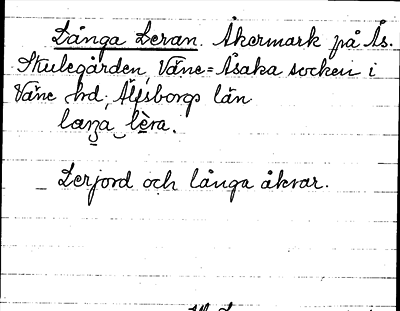 Långa Leran. Åkermark på Ås.
Skulegården, Väne=Åsaka socken i
Väne hd, Älfsborgs län
laŋa lèra.
Lerjord och långa åkrar.